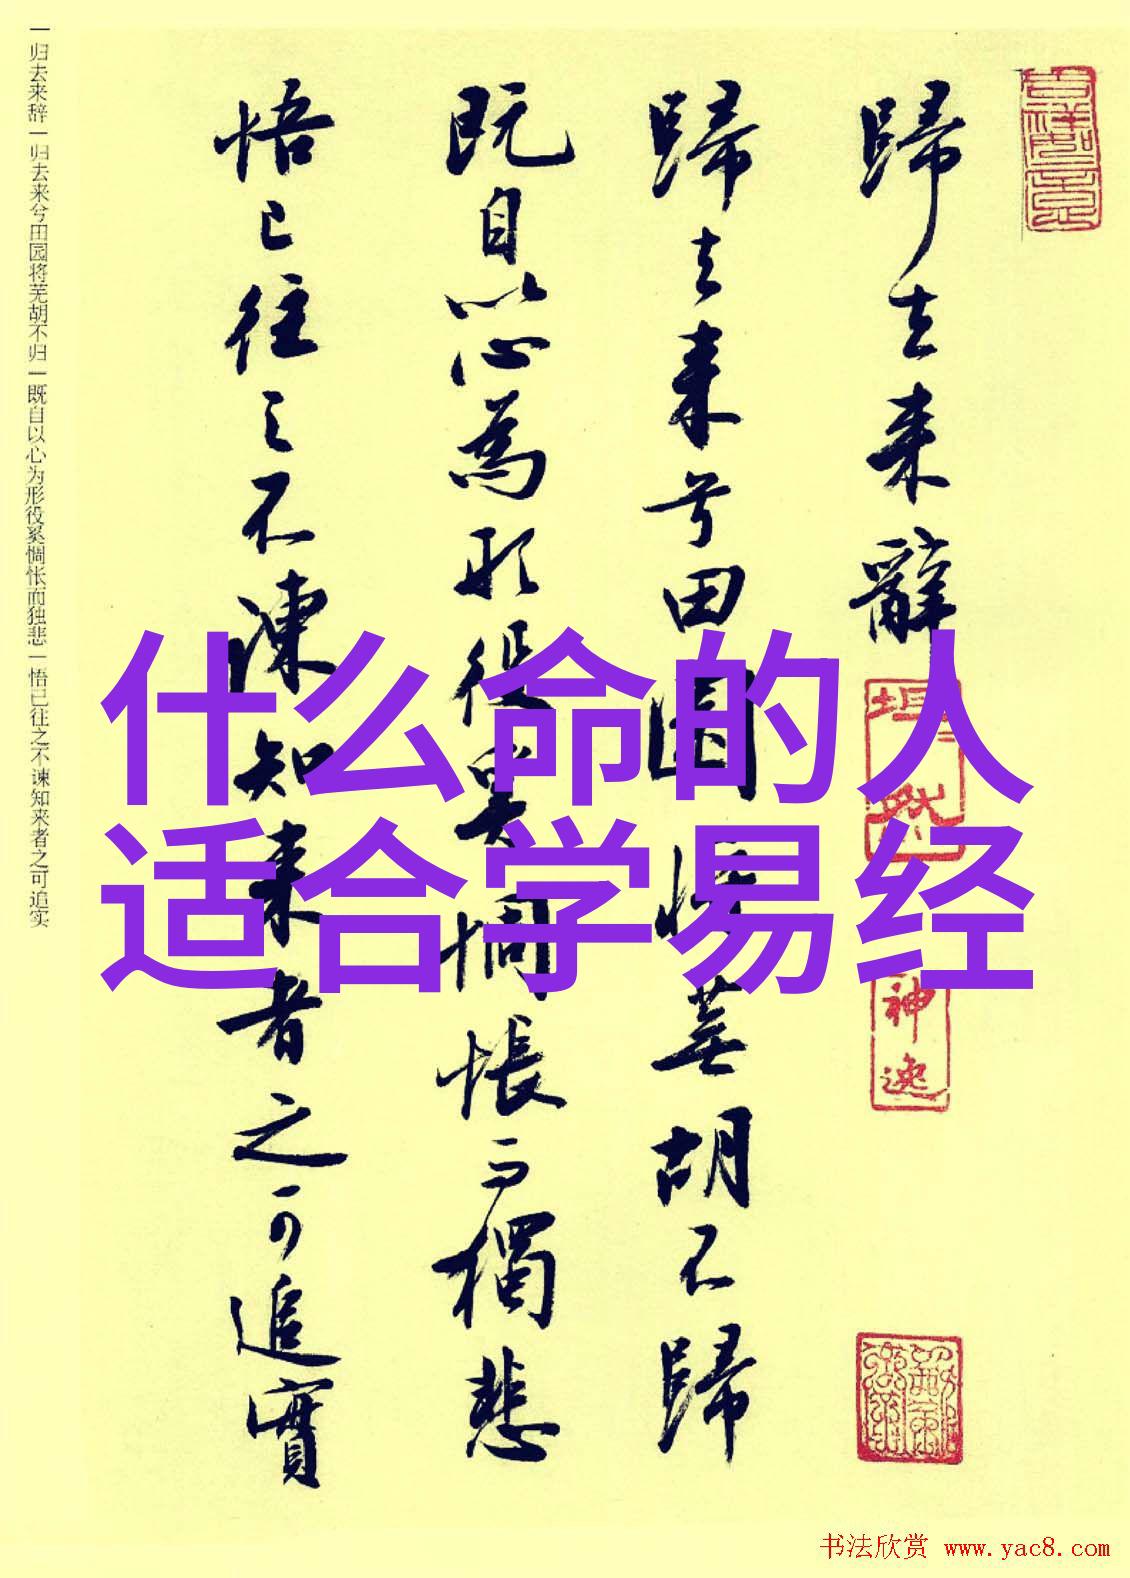 一归去来辞一归去来兮田园将芜胡不归一既自以心为形役奚惆怅而独悲一悟已往之不谏知来者之可追实
歸去来辭
歸去来兮田園將蕪胡不歸
既自以心為形役奚惆悵而獨悲
悟已往之不諫知来者之可追實
什么命的人
适合学易经
神逸
书法欣赏 www.yac8.com